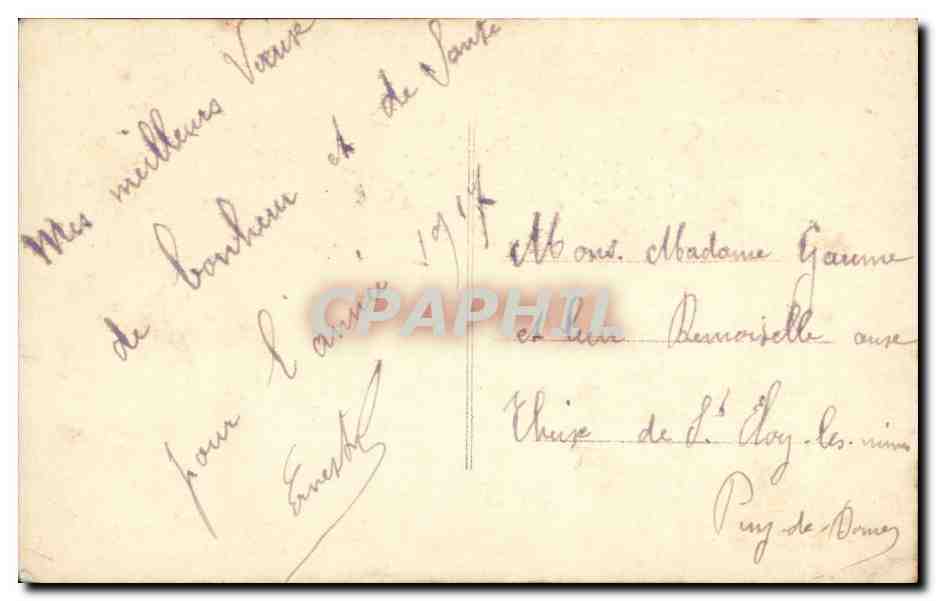 Mes meilleurs Vœux
de bonheur et de Santé
pour l'année 1917
Ernest
Mons. Madame Gaume
et leur Demoiselle aux
de St Eloy-les-mines
Puy-de-Dome
CPAPHIL